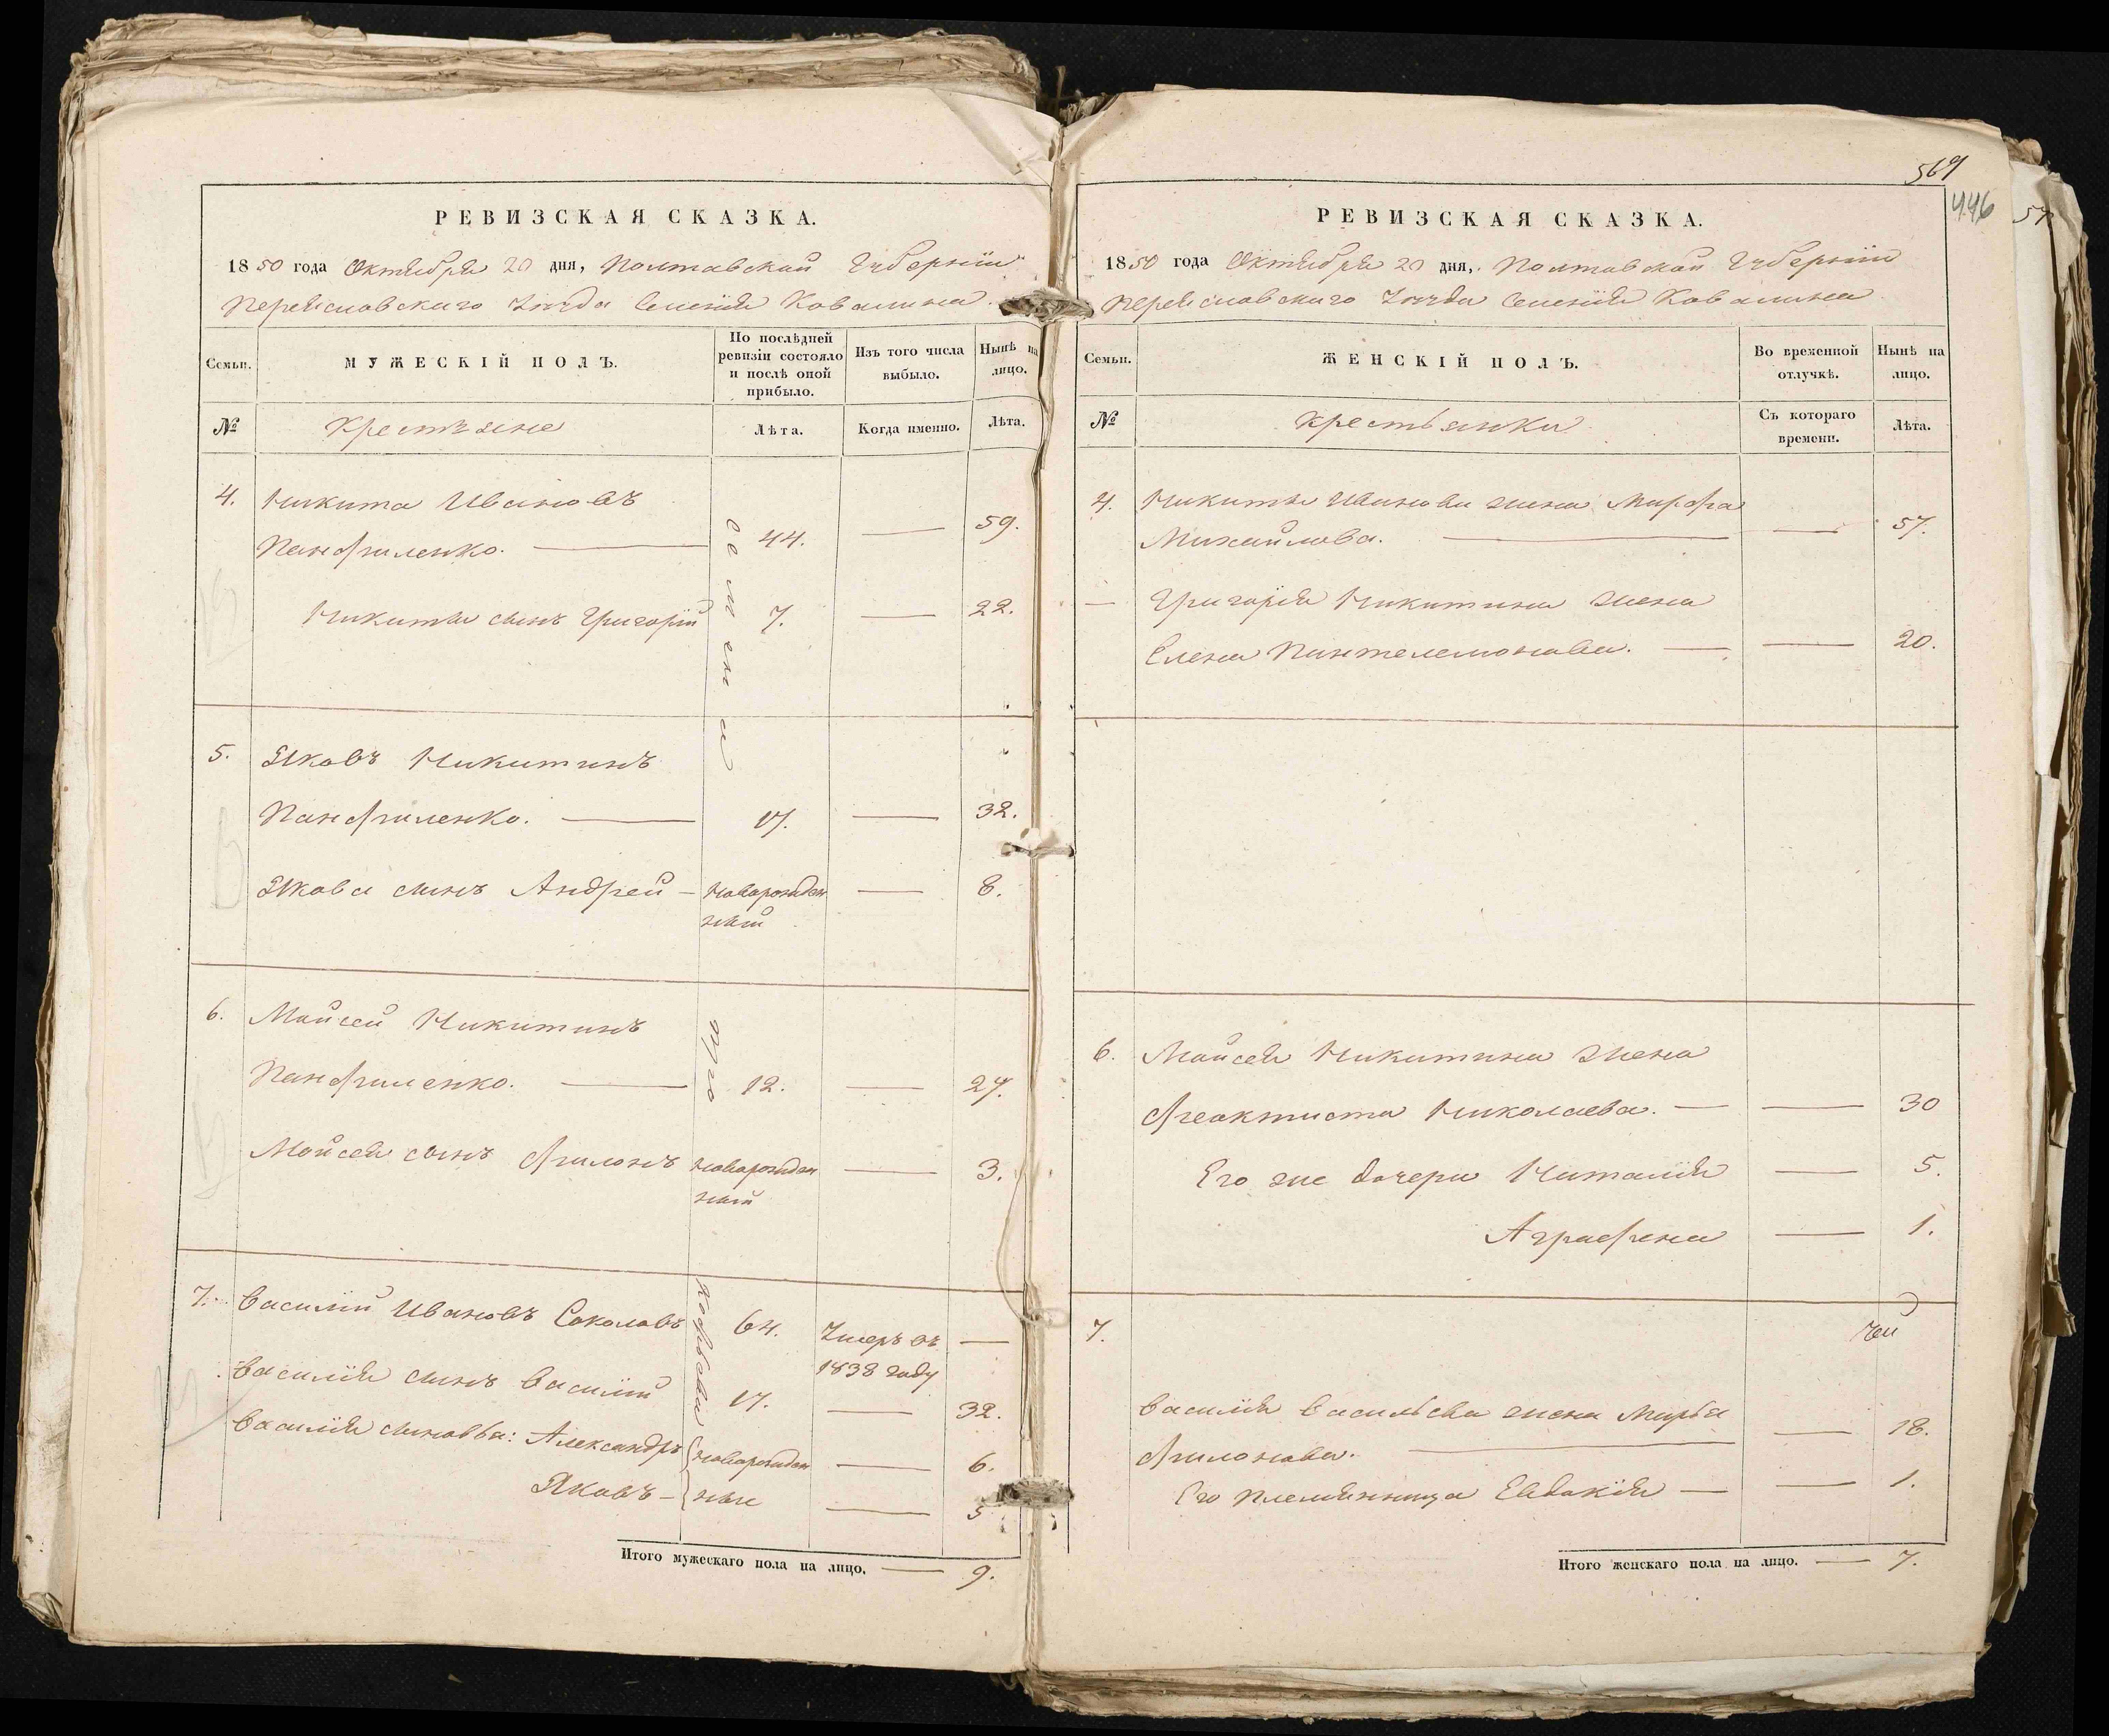 РЕВИЗСКАЯ СКАЗКА.
1850 года Октября 20 дня, Полтавской Губернiи
Переяславскаго Уѣзда Селенiя Ковалина
Семьи.
МУЖЕСКIЙ ПОЛЪ.
По послѣдней ревизiи состояло и послѣ оной прибыло.
Изъ того числа выбыло.
Нынѣ на лицо.
№
Крестьяне
Лѣта.
Когда именно.
Лѣта.
4. Никита Ивановъ
Панфиленко. 44. 59.
Никиты сынъ Григорiй 7. 22.
5. Яковъ Никитинъ
Панфиленко. 17. 32.
Якова сынъ Андрей — новорожден 8.
ный
6. Мойсей Никитинъ
Панфиленко. 12. 27.
Мойсея сынъ Филонъ новорожден 3.
ный
7. Василiй Ивановъ Соколовъ 64. Умеръ въ —
1838 году
Василiя сынъ Василiй 17. 32.
Василiя сыновья: Александръ новорожден 6.
Яковъ — ные 5
Итого мужескаго пола на лицо. — 9.
569
446
РЕВИЗСКАЯ СКАЗКА.
1850 года Октября 20 дня, Полтавской Губернiи
Переяславскаго Уѣзда Селенiя Ковалина
Семьи.
ЖЕНСКIЙ ПОЛЪ.
Во временной отлучкѣ.
Нынѣ на лицо.
№
Крестьянки
Съ котораго времени.
Лѣта.
4. Никиты Иванова жена Марфа
Михайлова. 57.
— Григорiя Никитина жена
Елена Пантелемонова. 20.
6. Мойсея Никитина жена
Феоктиста Николаева. 30
Его же дочери Наталiя 5.
Аграфена 1.
7.
Василiя Васильева жена Марья
Филонова. 18.
Его племянница Евдокiя — 1.
Итого женскаго пола на лицо. — 7.